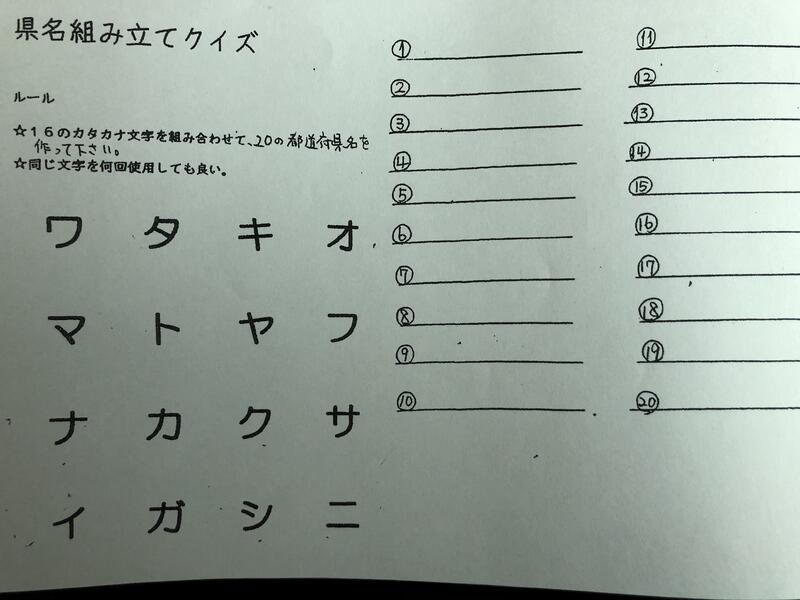 県名組み立てクイズ
ルール
☆16のカタカナ文字を組み合わせて、20の都道府県名を
作って下さい。
☆同じ文字を何回使用しても良い。
ワ タ キ オ
マ ト ヤ フ
ナ カ ク サ
イ ガ シ ニ
①
②
③
④
⑤
⑥
⑦
⑧
⑨
⑩
⑪
⑫
⑬
⑭
⑮
⑯
⑰
⑱
⑲
⑳